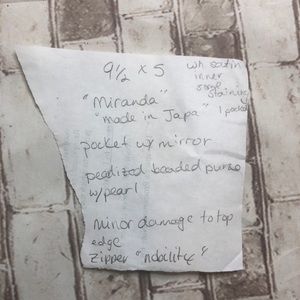 9 1/2 x 5
wh satin
inner
some
staining
1 pocket
"Miranda"
"made in Japa"
pocket w/ mirror
pearlized beaded purse
w/pearl
minor damage to top
edge
Zipper "nobility"